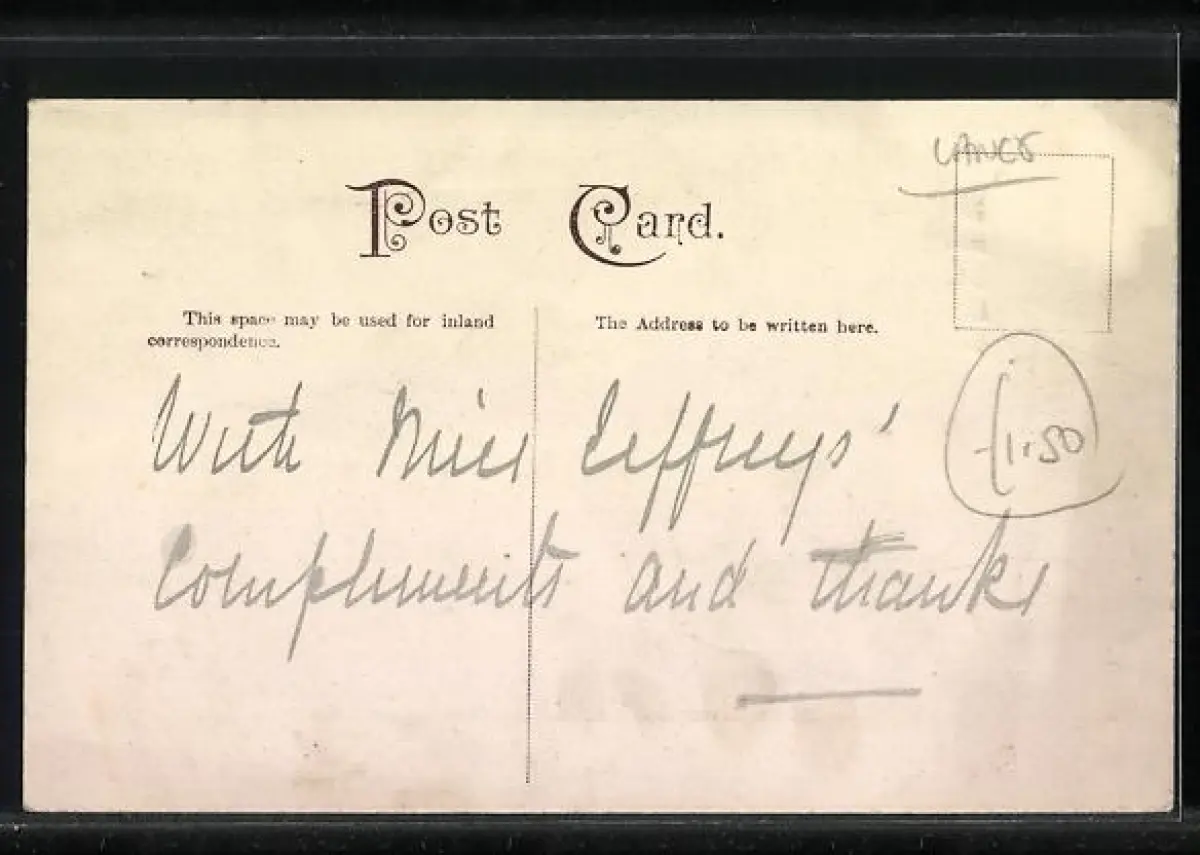 LANCS
Post Card.
This space may be used for inland
correspondence.
The Address to be written here.
£1.50
With Miss Jeffreys'
Compliments and thanks